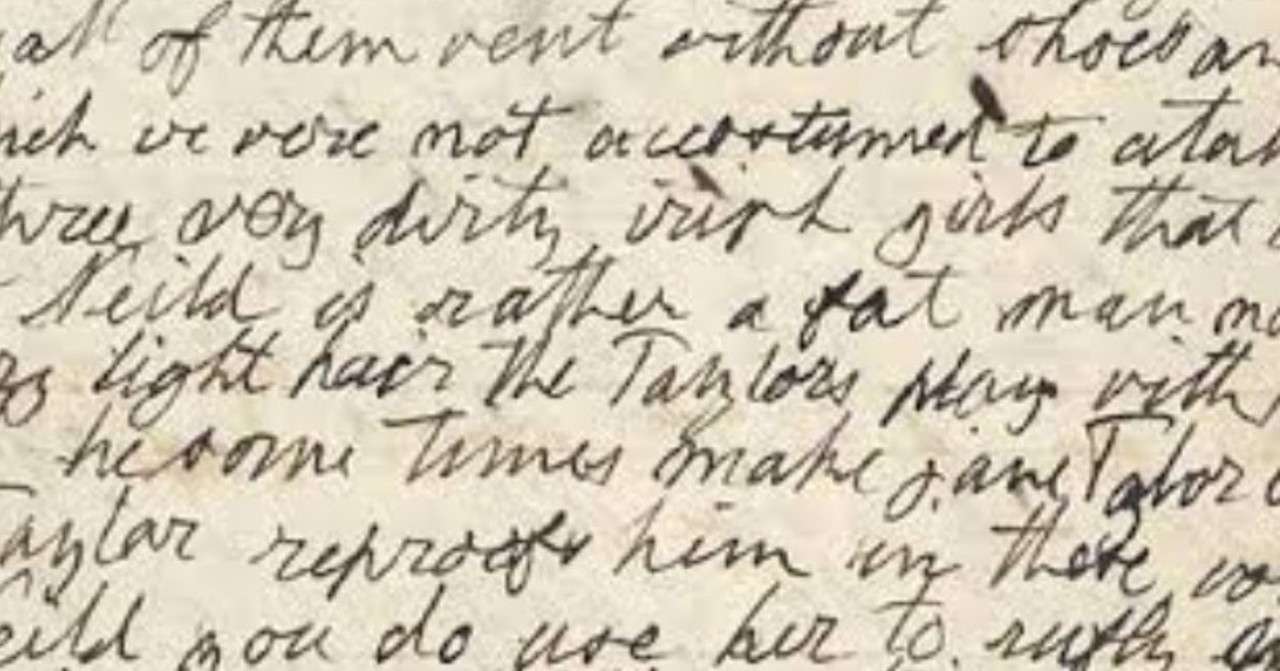 all of them went without shoes an
hich we were not accostumed to atah
three very dirty irish girls that
Neild is rather a fat man
light hair The Taylors play with
he some times make jane Talor
Taylor reproofs him in these wo
eild you do use her to ruffly